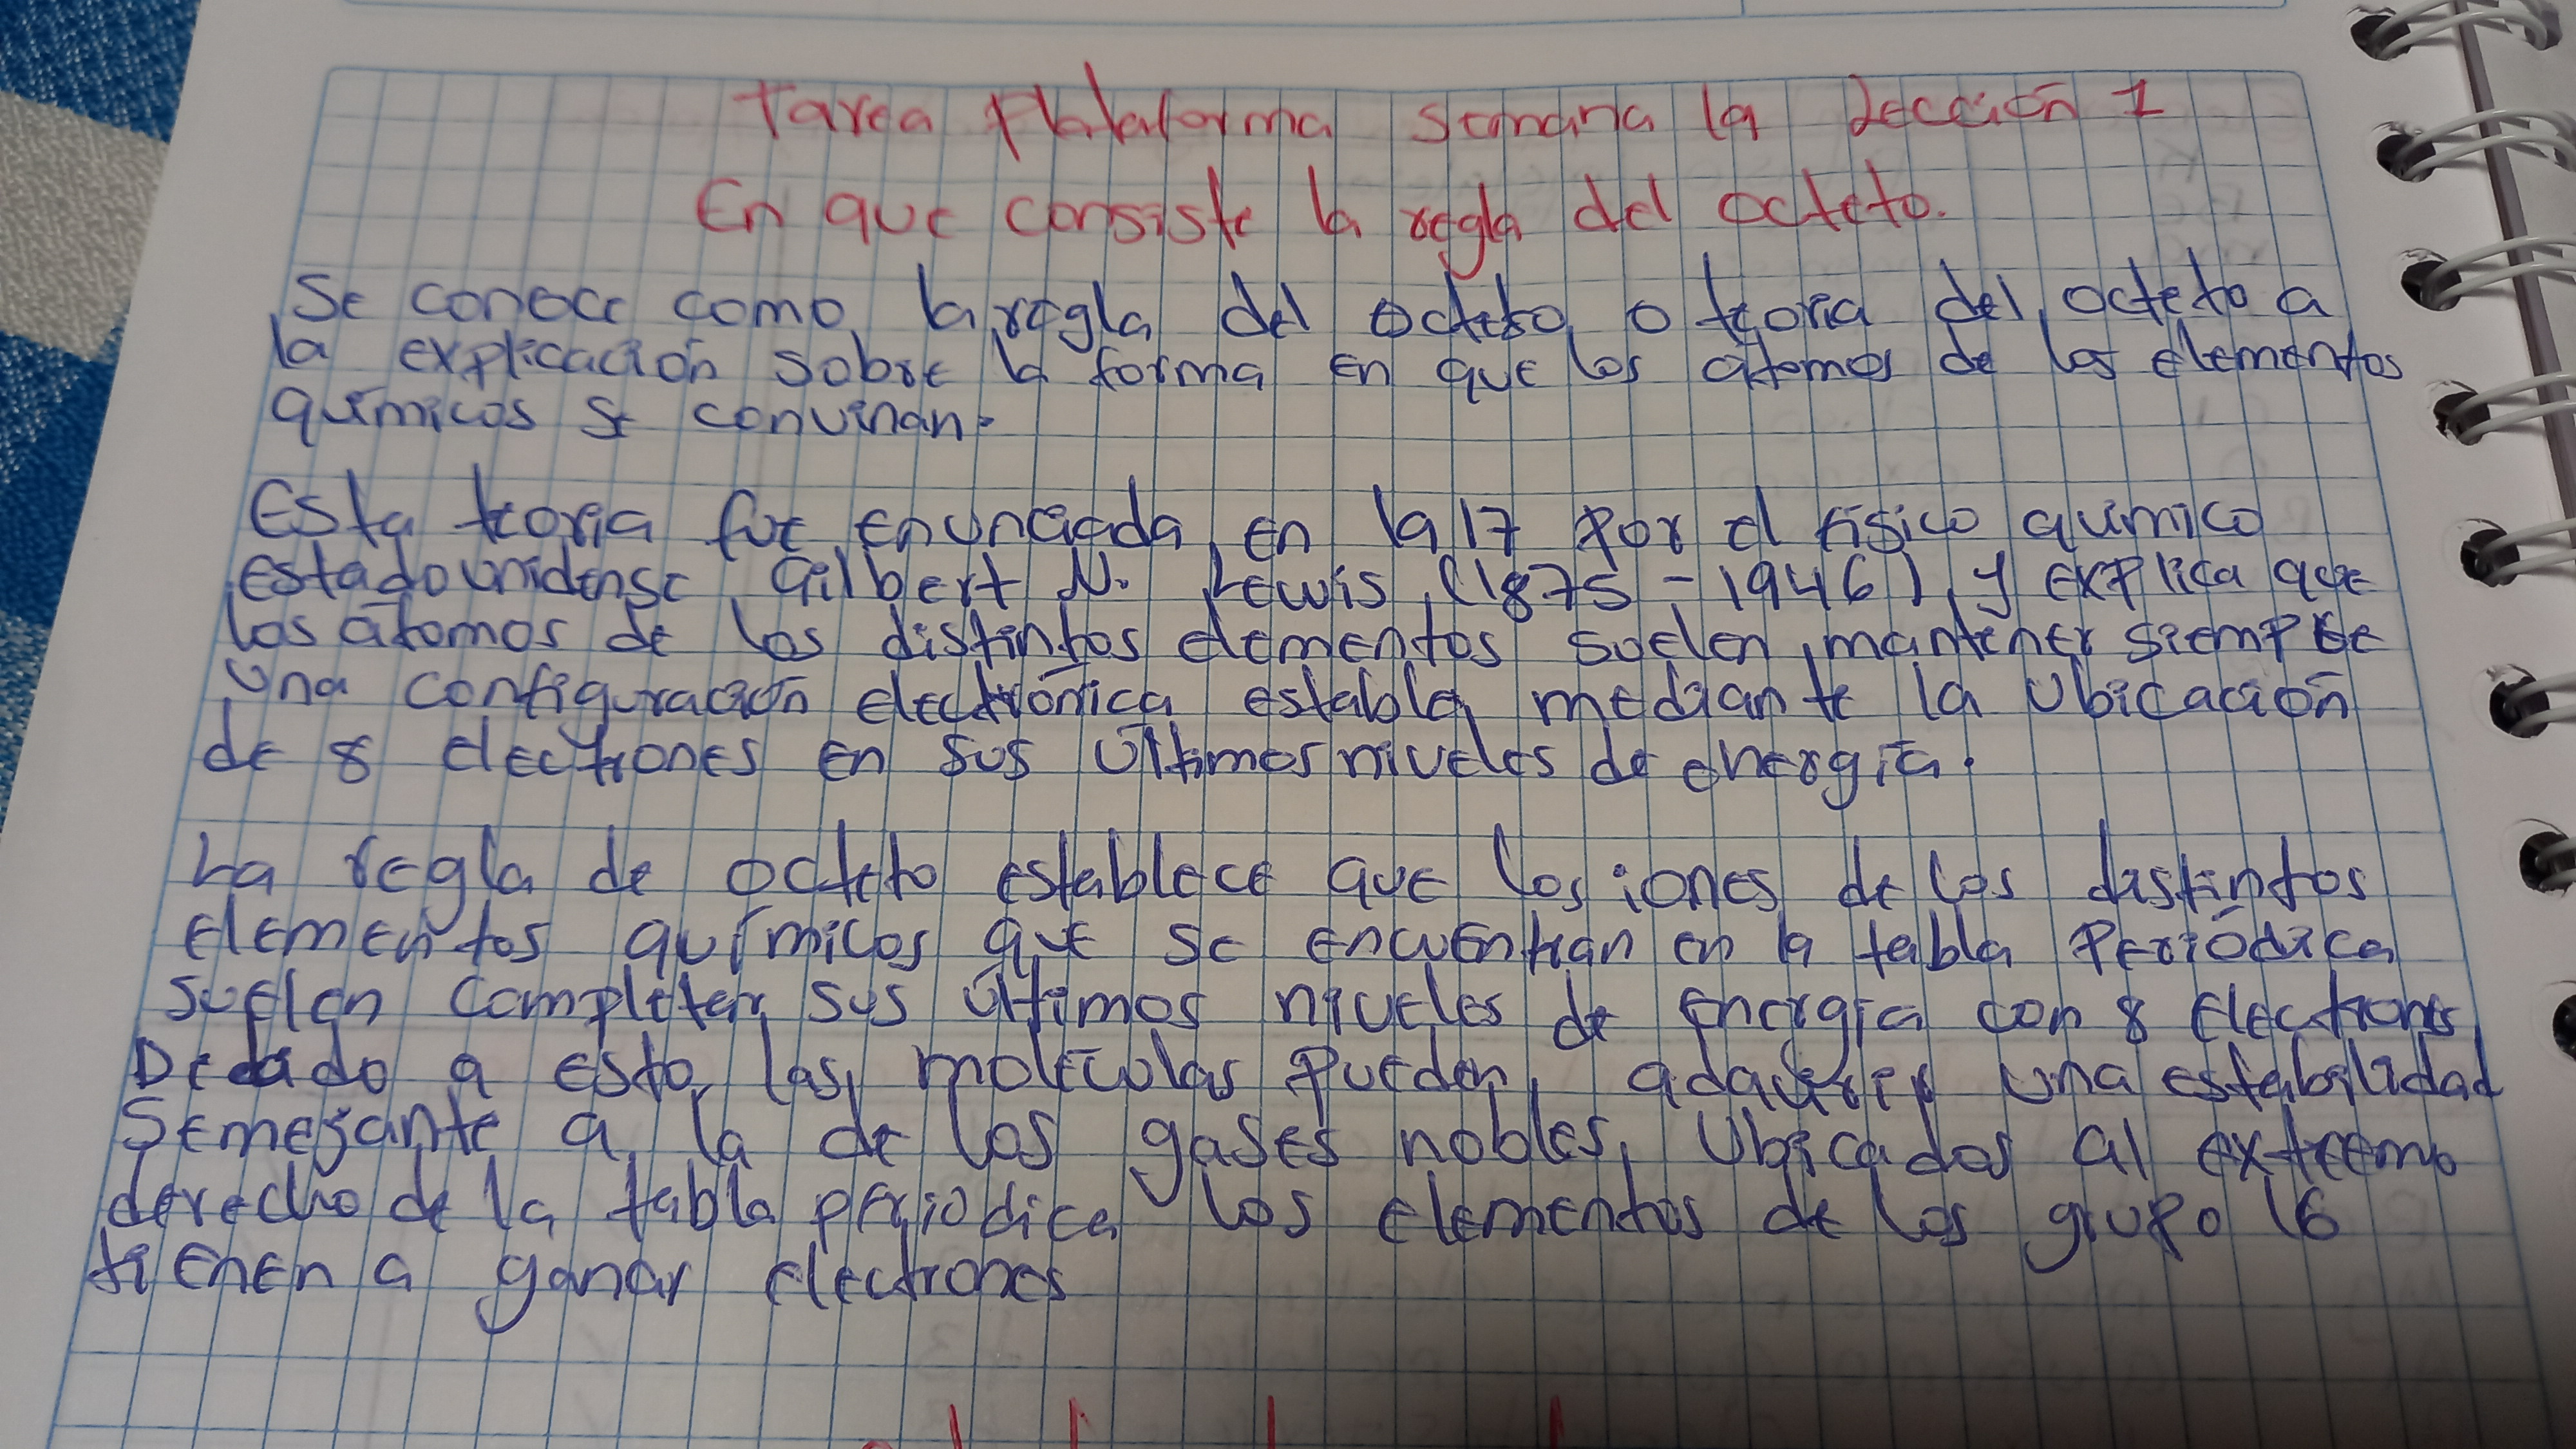 Tarea Plataforma Semana 19 Lección 1
En que consiste la regla del octeto.
Se conoce como la regla del octeto o teoria del octeto a
la explicación sobre la forma en que los átomos de los elementos
químicos se convinan.
Esta teoria fue enunciada en 1917 por el físico químico
estadounidense Gilbert N. Lewis (1875-1946) y explica que
los átomos de los distintos elementos suelen mantener siempre
una configuración electrónica estable mediante la ubicación
de 8 electrones en sus últimos niveles de energía.
La regla de octeto establece que los iones de los distintos
elementos químicos que se encuentran en la tabla Periódica
suelen completar sus últimos niveles de energía con 8 electrones
Debido a esto las moléculas pueden adquirir una estabilidad
Semejante a la de los gases nobles, Ubicados al extremo
derecho de la tabla periodica los elementos de los grupo 16
tienen a ganar electrones